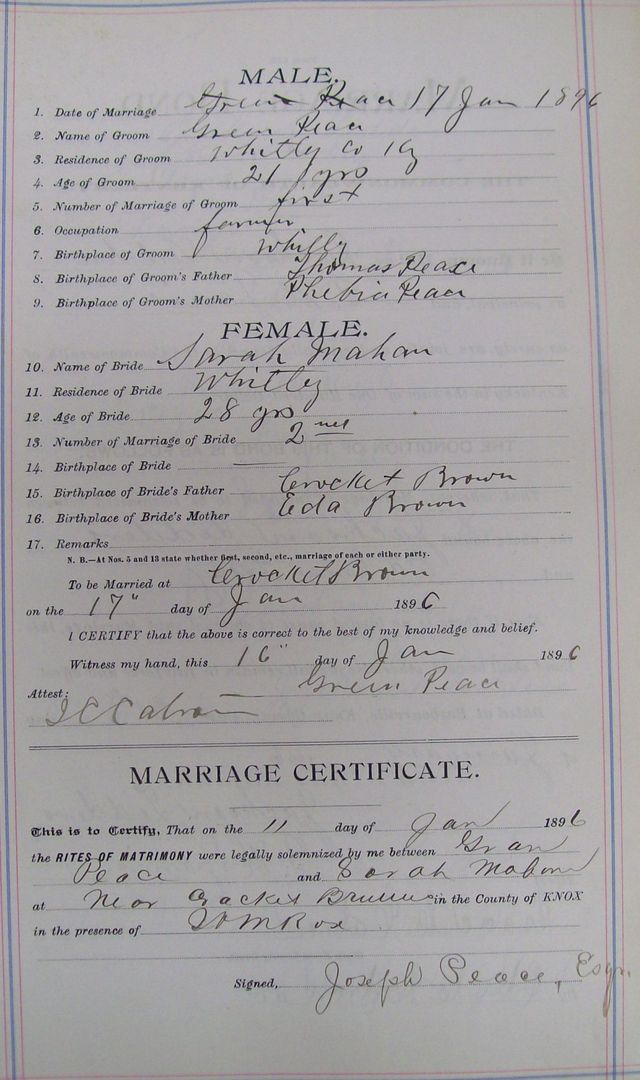 MALE.
1. Date of Marriage Green Peace 17 Jan 1896
2. Name of Groom Green Peace
3. Residence of Groom Whitly Co Ky
4. Age of Groom 21 yrs
5. Number of Marriage of Groom first
6. Occupation farmer
7. Birthplace of Groom Whitly
8. Birthplace of Groom's Father Thomas Peace
9. Birthplace of Groom's Mother Phebia Peace
FEMALE.
10. Name of Bride Sarah Mahan
11. Residence of Bride Whitley
12. Age of Bride 28 yrs
13. Number of Marriage of Bride 2nd
14. Birthplace of Bride
15. Birthplace of Bride's Father Crocket Brown
16. Birthplace of Bride's Mother Eda Brown
17. Remarks
N. B.—At Nos. 5 and 13 state whether first, second, etc., marriage of each or either party.
To be Married at Crocket Brown
on the 17" day of Jan 1896
I CERTIFY that the above is correct to the best of my knowledge and belief.
Witness my hand, this 16" day of Jan 1896
Green Peace
Attest:
MARRIAGE CERTIFICATE.
This is to Certify, That on the 11 day of Jan 1896
the RITES OF MATRIMONY were legally solemnized by me between Gran
Peace and Sarah
at Near in the County of KNOX
in the presence of
Signed, Joseph Peace, Esqr.